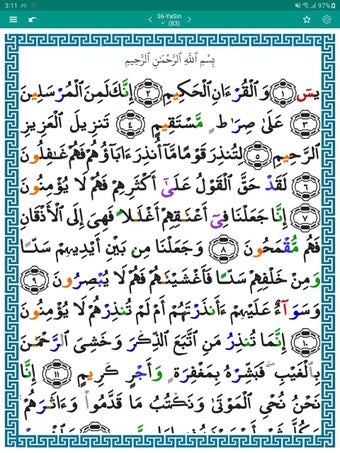 3:11
97%
36-YaSin
(83)
بِسْمِ ٱللَّهِ ٱلرَّحْمَٰنِ ٱلرَّحِيمِ
يسٓ ١ وَٱلْقُرْءَانِ ٱلْحَكِيمِ ٢ إِنَّكَ لَمِنَ ٱلْمُرْسَلِينَ
٣ عَلَىٰ صِرَٰطٍ مُّسْتَقِيمٍ ٤ تَنزِيلَ ٱلْعَزِيزِ
ٱلرَّحِيمِ ٥ لِتُنذِرَ قَوْمًا مَّآ أُنذِرَ ءَابَآؤُهُمْ فَهُمْ غَٰفِلُونَ
٦ لَقَدْ حَقَّ ٱلْقَوْلُ عَلَىٰٓ أَكْثَرِهِمْ فَهُمْ لَا يُؤْمِنُونَ
٧ إِنَّا جَعَلْنَا فِىٓ أَعْنَٰقِهِمْ أَغْلَٰلًا فَهِىَ إِلَى ٱلْأَذْقَانِ
فَهُم مُّقْمَحُونَ ٨ وَجَعَلْنَا مِنۢ بَيْنِ أَيْدِيهِمْ سَدًّا
وَمِنْ خَلْفِهِمْ سَدًّا فَأَغْشَيْنَٰهُمْ فَهُمْ لَا يُبْصِرُونَ ٩
وَسَوَآءٌ عَلَيْهِمْ ءَأَنذَرْتَهُمْ أَمْ لَمْ تُنذِرْهُمْ لَا يُؤْمِنُونَ
١٠ إِنَّمَا تُنذِرُ مَنِ ٱتَّبَعَ ٱلذِّكْرَ وَخَشِىَ ٱلرَّحْمَٰنَ
بِٱلْغَيْبِ فَبَشِّرْهُ بِمَغْفِرَةٍ وَأَجْرٍ كَرِيمٍ ١١ إِنَّا
نَحْنُ نُحْىِ ٱلْمَوْتَىٰ وَنَكْتُبُ مَا قَدَّمُوا۟ وَءَاثَٰرَهُمْ